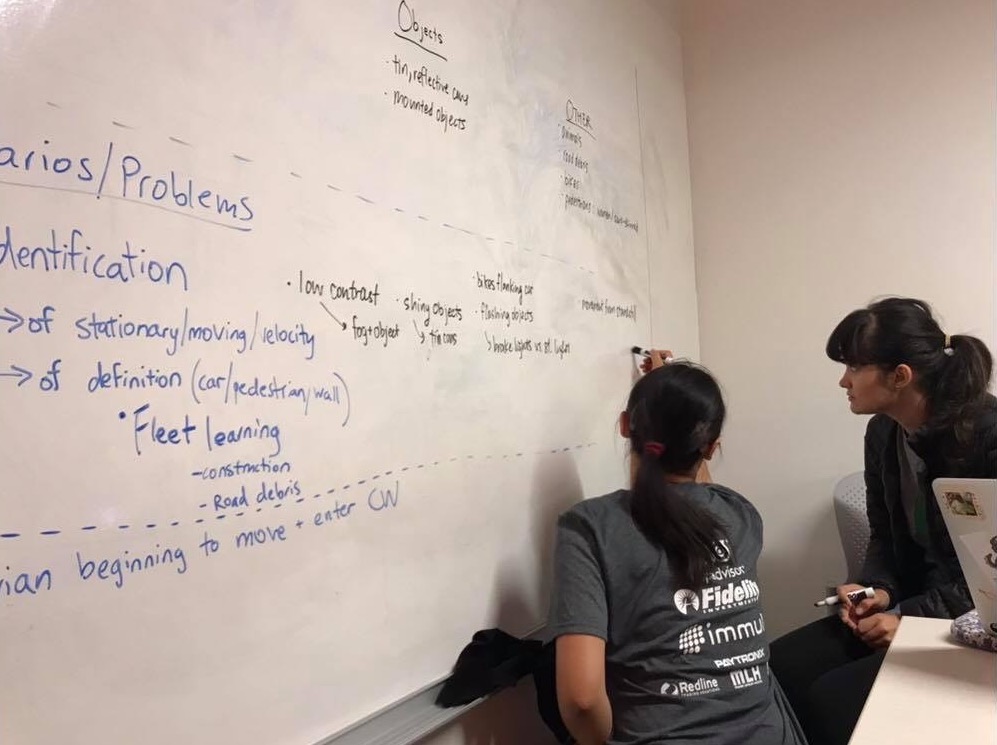 Objects
· tin, reflective cans
· mounted objects
OTHER
· animals
· road debris
· bikes
· pedestrians :
arios/Problems
dentification
→ of stationary/moving/velocity
→ of definition (car/pedestrian/wall)
· Fleet learning
- construction
- Road debris
· low contrast
fog + object
· shiny objects
tin cans
· bikes flanking car
· flashing objects
brake lights vs. st. lights
· movement from standstill
ian beginning to move + enter CW
advisor
Fidelity
INVESTMENTS
immu
PAYTRONIX
Redline
MLH